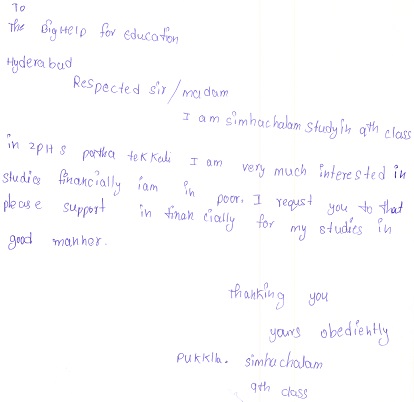 To
The BigHelp for education
Hyderabad
Respected sir/madam
I am simhachalam study in 9th class
in ZPH S partha tekkali I am very much interested in
studies financially iam in poor. I requst you to that
please support in finan cially for my studies in
good manner.
thanking you
yours obediently
PUKKlla. simhachalam
9th class